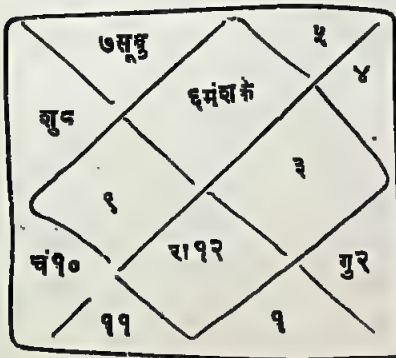 ७सूबु
५
४
शु८
६मंशके
३
९
चं१०
रा१२
गु२
११
१